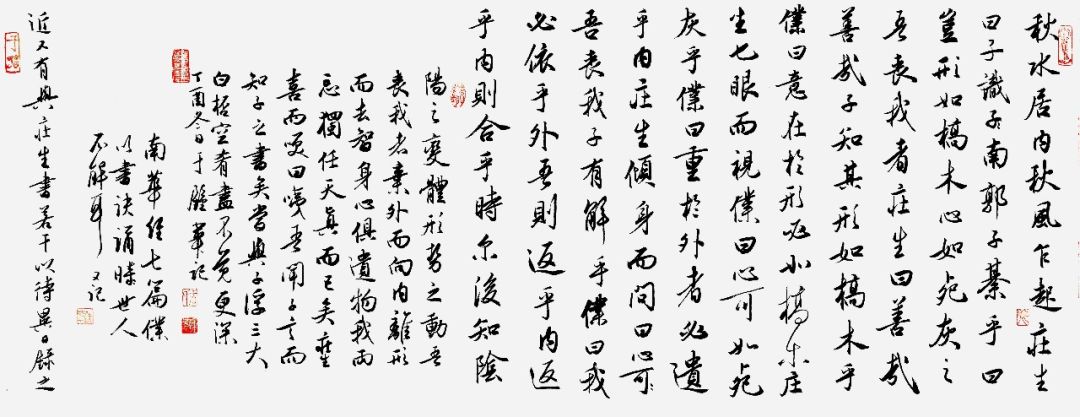 秋水居内秋風乍起莊生
曰子識子南郭子綦乎曰
豈形如槁木心如死灰之
吾喪我者庄生曰善哉
善哉子知其形如槁木乎
僕曰意在於形必槁木庄
生乜眼而視僕曰心可如死
灰乎僕曰重於外者必遺
乎内庄生傾身而問曰何
吾喪我子有解乎僕曰我
必依乎外吾則返乎内返
乎内則合乎時尔後知陰
陽之變體形势之動吾
喪我者棄外而向内離形
而去智身心俱遺物我兩
忘獨任天真而已矣莊生
喜而曰噫吾聞子言而
知子之書矣當與子浮三大
白空肴盡不覺更深
丁酉冬日于記
南華經七篇僕
以書訣誦時世人
不解耳又記
近又有與庄生書若干以待異日録之